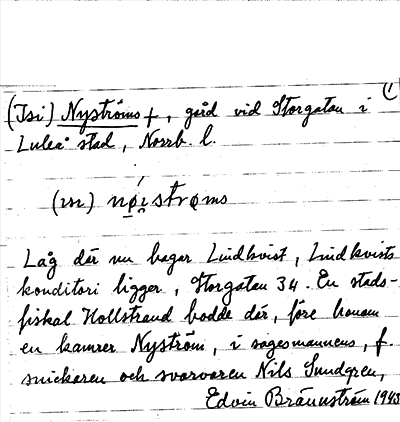 (Tsi) Nyströms +, gård vid Storgatan i
Luleå stad, Norrb. l.
(m) nøi̯strøms
Låg där nu bagar Lindkvist, Lindkvists
konditori ligger, Storgatan 34. En stads-
fiskal Hollstrand bodde där, före honom
en kamrer Nyström, i sagesmannens, f.
snickaren och svarvaren Nils Sundgren,
Edvin Brännström 1943